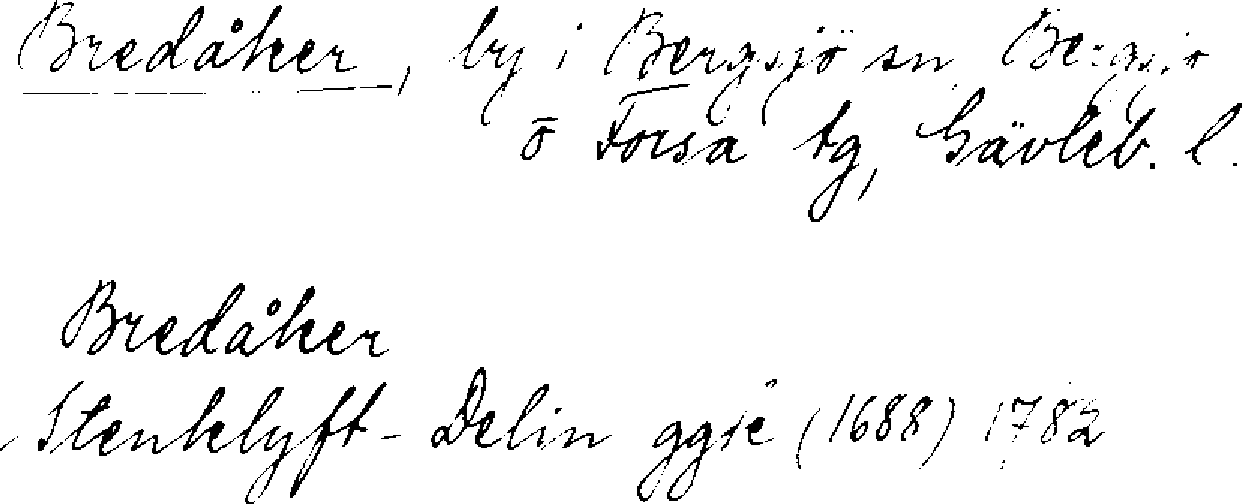 Bredåker, by i Bergsjö sn Bergsjö
o Forsa tg, Gävleb. l.
Bredåker
Stenklyft- Delin ggje (1688) 1782